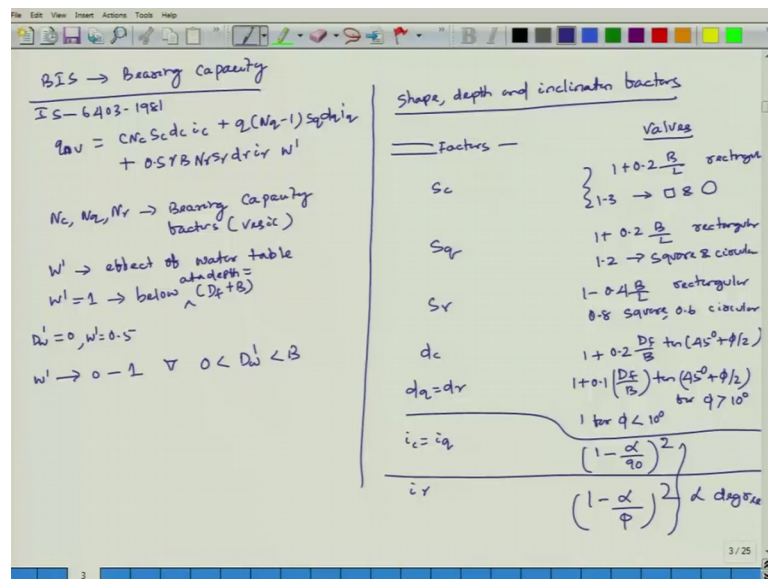 File Edit View Insert Actions Tools Help
BIS → Bearing Capacity
IS-6403-1981
qnu = CNc Sc dc ic + q(Nq-1) Sq dq iq
+ 0.5 γ B Nr Sr dr ir W'
Nc, Nq, Nr → Bearing Capacity
factors (vesic)
W' → effect of water table
at a depth =
W' = 1 → below ^ (Df + B)
Dw' = 0, W' = 0.5
W' → 0 - 1 ∀ 0 < Dw' < B
Shape, depth and inclination factors
Factors Values
Sc { 1 + 0.2 B/L rectangul
1.3 → □ & ○
Sq 1 + 0.2 B/L rectangular
1.2 → Square & circular
Sr 1 - 0.4 B/L rectangular
0.8 square, 0.6 circular
dc 1 + 0.2 Df/B tan(45° + φ/2)
dq = dr 1 + 0.1 (Df/B) tan(45° + φ/2)
for φ > 10°
1 for φ < 10°
ic = iq (1 - α/90)²
ir (1 - α/φ)² } α degree
3 / 25
3